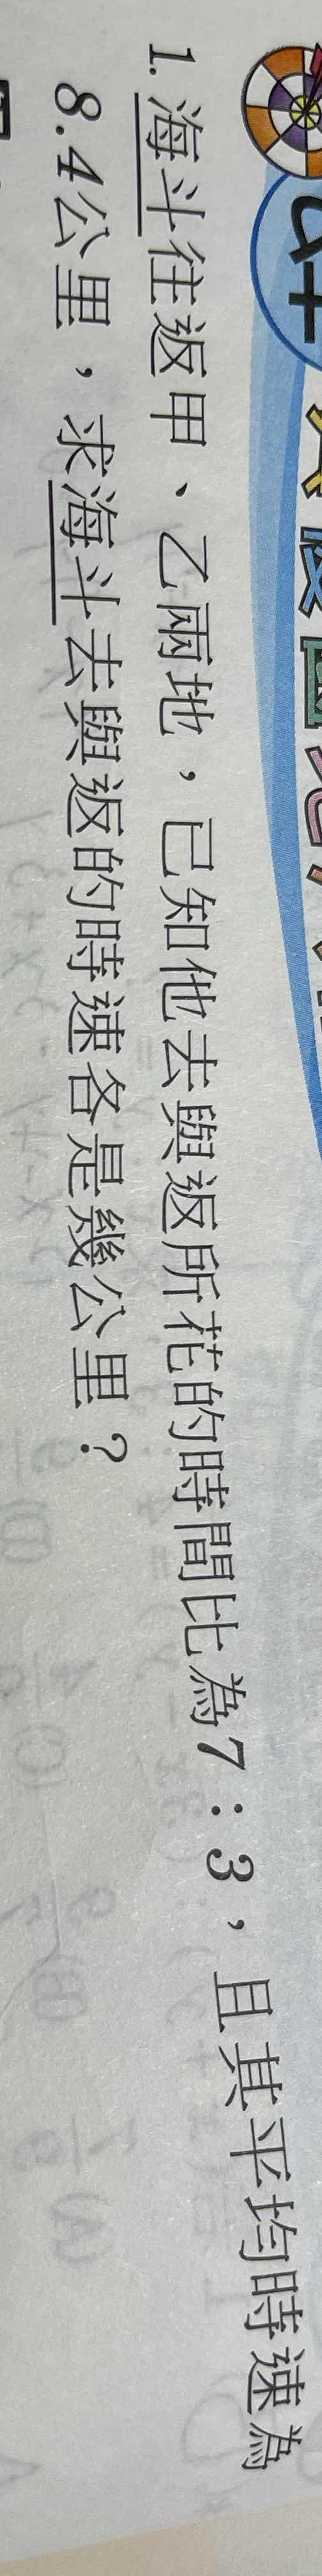 1. 海斗往返甲、乙兩地，已知他去與返所花的時間比為7：3，且其平均時速為
8.4公里，求海斗去與返的時速各是幾公里？